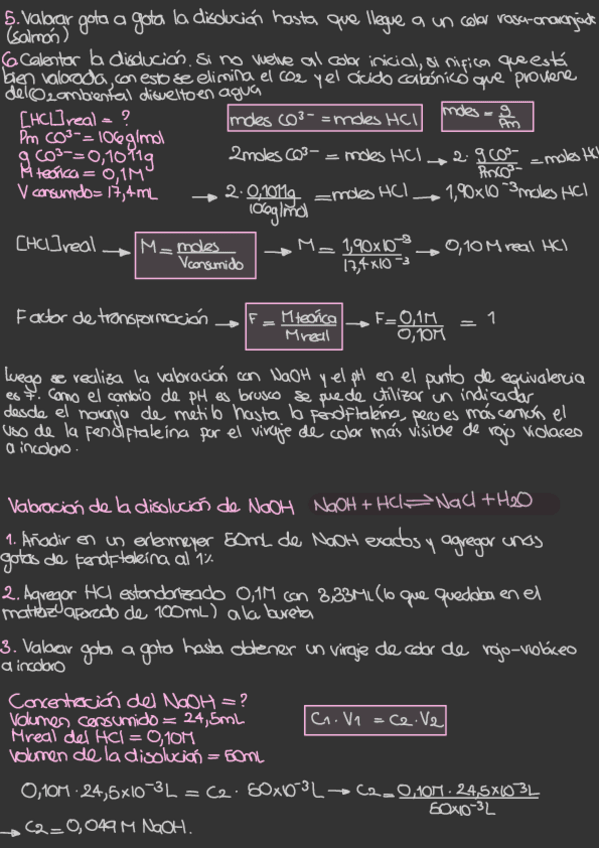 5. Valorar gota a gota la disolución hasta que llegue a un color rosa-anaranjado
(salmón)
6. Calentar la disolución. Si no vuelve al color inicial, significa que está
bien valorada, con esto se elimina el CO2 y el ácido carbónico que proviene
del CO2 ambiental disuelto en agua
[HCl] real = ?
Pm CO³⁻ = 106g/mol
g CO³⁻ = 0,1011g
M teórica = 0,1M
V consumido = 17,4mL
moles CO³⁻ = moles HCl
moles = g/Pm
2moles CO³⁻ = moles HCl → 2 · g CO³⁻/Pm CO³⁻ = moles HCl
→ 2 · 0,1011g/106g/mol = moles HCl → 1,90x10⁻³ moles HCl
[HCl] real → M = moles/V consumido → M = 1,90x10⁻³/17,4x10⁻³ → 0,10 M real HCl
Factor de transformación → F = M teórica/M real → F = 0,1M/0,10M = 1
Luego se realiza la valoración con NaOH y el pH en el punto de equivalencia
es 7. Como el cambio de pH es brusco se puede utilizar un indicador
desde el naranja de metilo hasta la fenolftaleína, pero es más común el
uso de la fenolftaleína por el viraje de color más visible de rojo violáceo
a incoloro.
Valoración de la disolución de NaOH NaOH + HCl ⇌ NaCl + H2O
1. Añadir en un erlenmeyer 50mL de NaOH exactos y agregar unas
gotas de fenolftaleína al 1%
2. Agregar HCl estandarizado 0,1M con 3,33mL (lo que quedaba en el
matraz aforado de 100mL) a la bureta
3. Valorar gota a gota hasta obtener un viraje de color de rojo-violáceo
a incoloro
Concentración del NaOH = ?
Volumen consumido = 24,5mL
M real del HCl = 0,10M
Volumen de la disolución = 50mL
C1 · V1 = C2 · V2
0,10M · 24,5x10⁻³L = C2 · 50x10⁻³L → C2 = 0,10M · 24,5x10⁻³L/50x10⁻³L
→ C2 = 0,049 M NaOH.